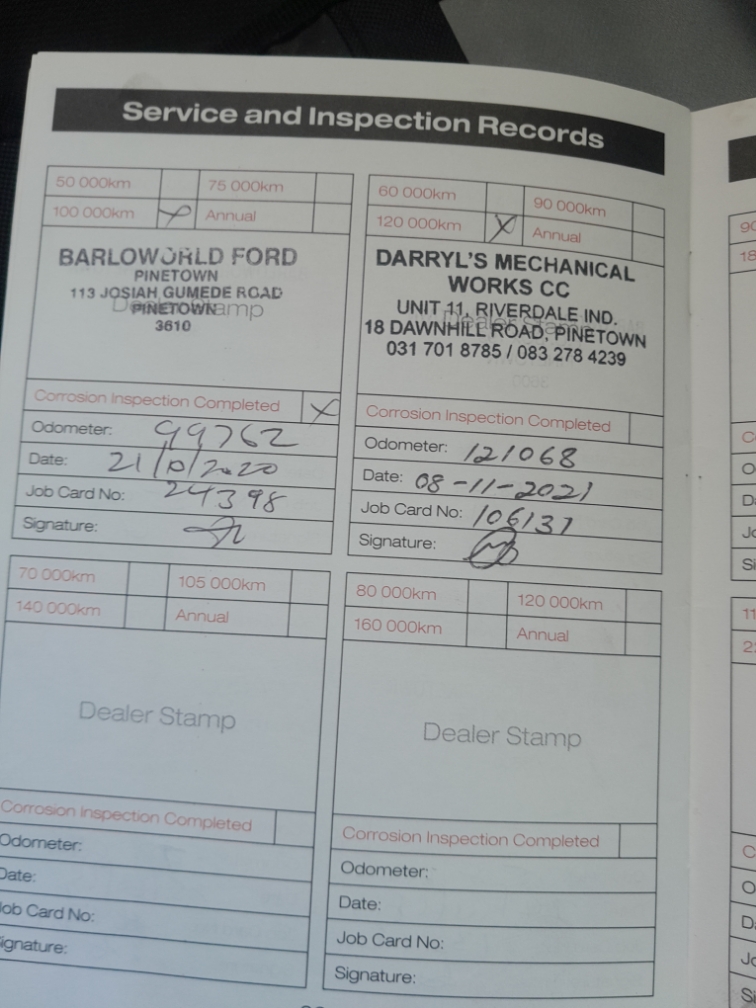 Service and Inspection Records
50 000km 75 000km
100 000km X Annual
BARLOWORLD FORD
PINETOWN
113 JOSIAH GUMEDE ROAD
PINETOWN
3610
Dealer Stamp
Corrosion Inspection Completed X
Odometer: 99762
Date: 21/10/2020
Job Card No: 24398
Signature:
60 000km 90 000km
120 000km X Annual
DARRYL'S MECHANICAL
WORKS CC
UNIT 11, RIVERDALE IND.
Dealer Stamp
18 DAWNHILL ROAD, PINETOWN
031 701 8785 / 083 278 4239
Corrosion Inspection Completed
Odometer: 121068
Date: 08-11-2021
Job Card No: 106131
Signature:
70 000km 105 000km
140 000km Annual
Dealer Stamp
Corrosion Inspection Completed
Odometer:
Date:
Job Card No:
Signature:
80 000km 120 000km
160 000km Annual
Dealer Stamp
Corrosion Inspection Completed
Odometer:
Date:
Job Card No:
Signature: